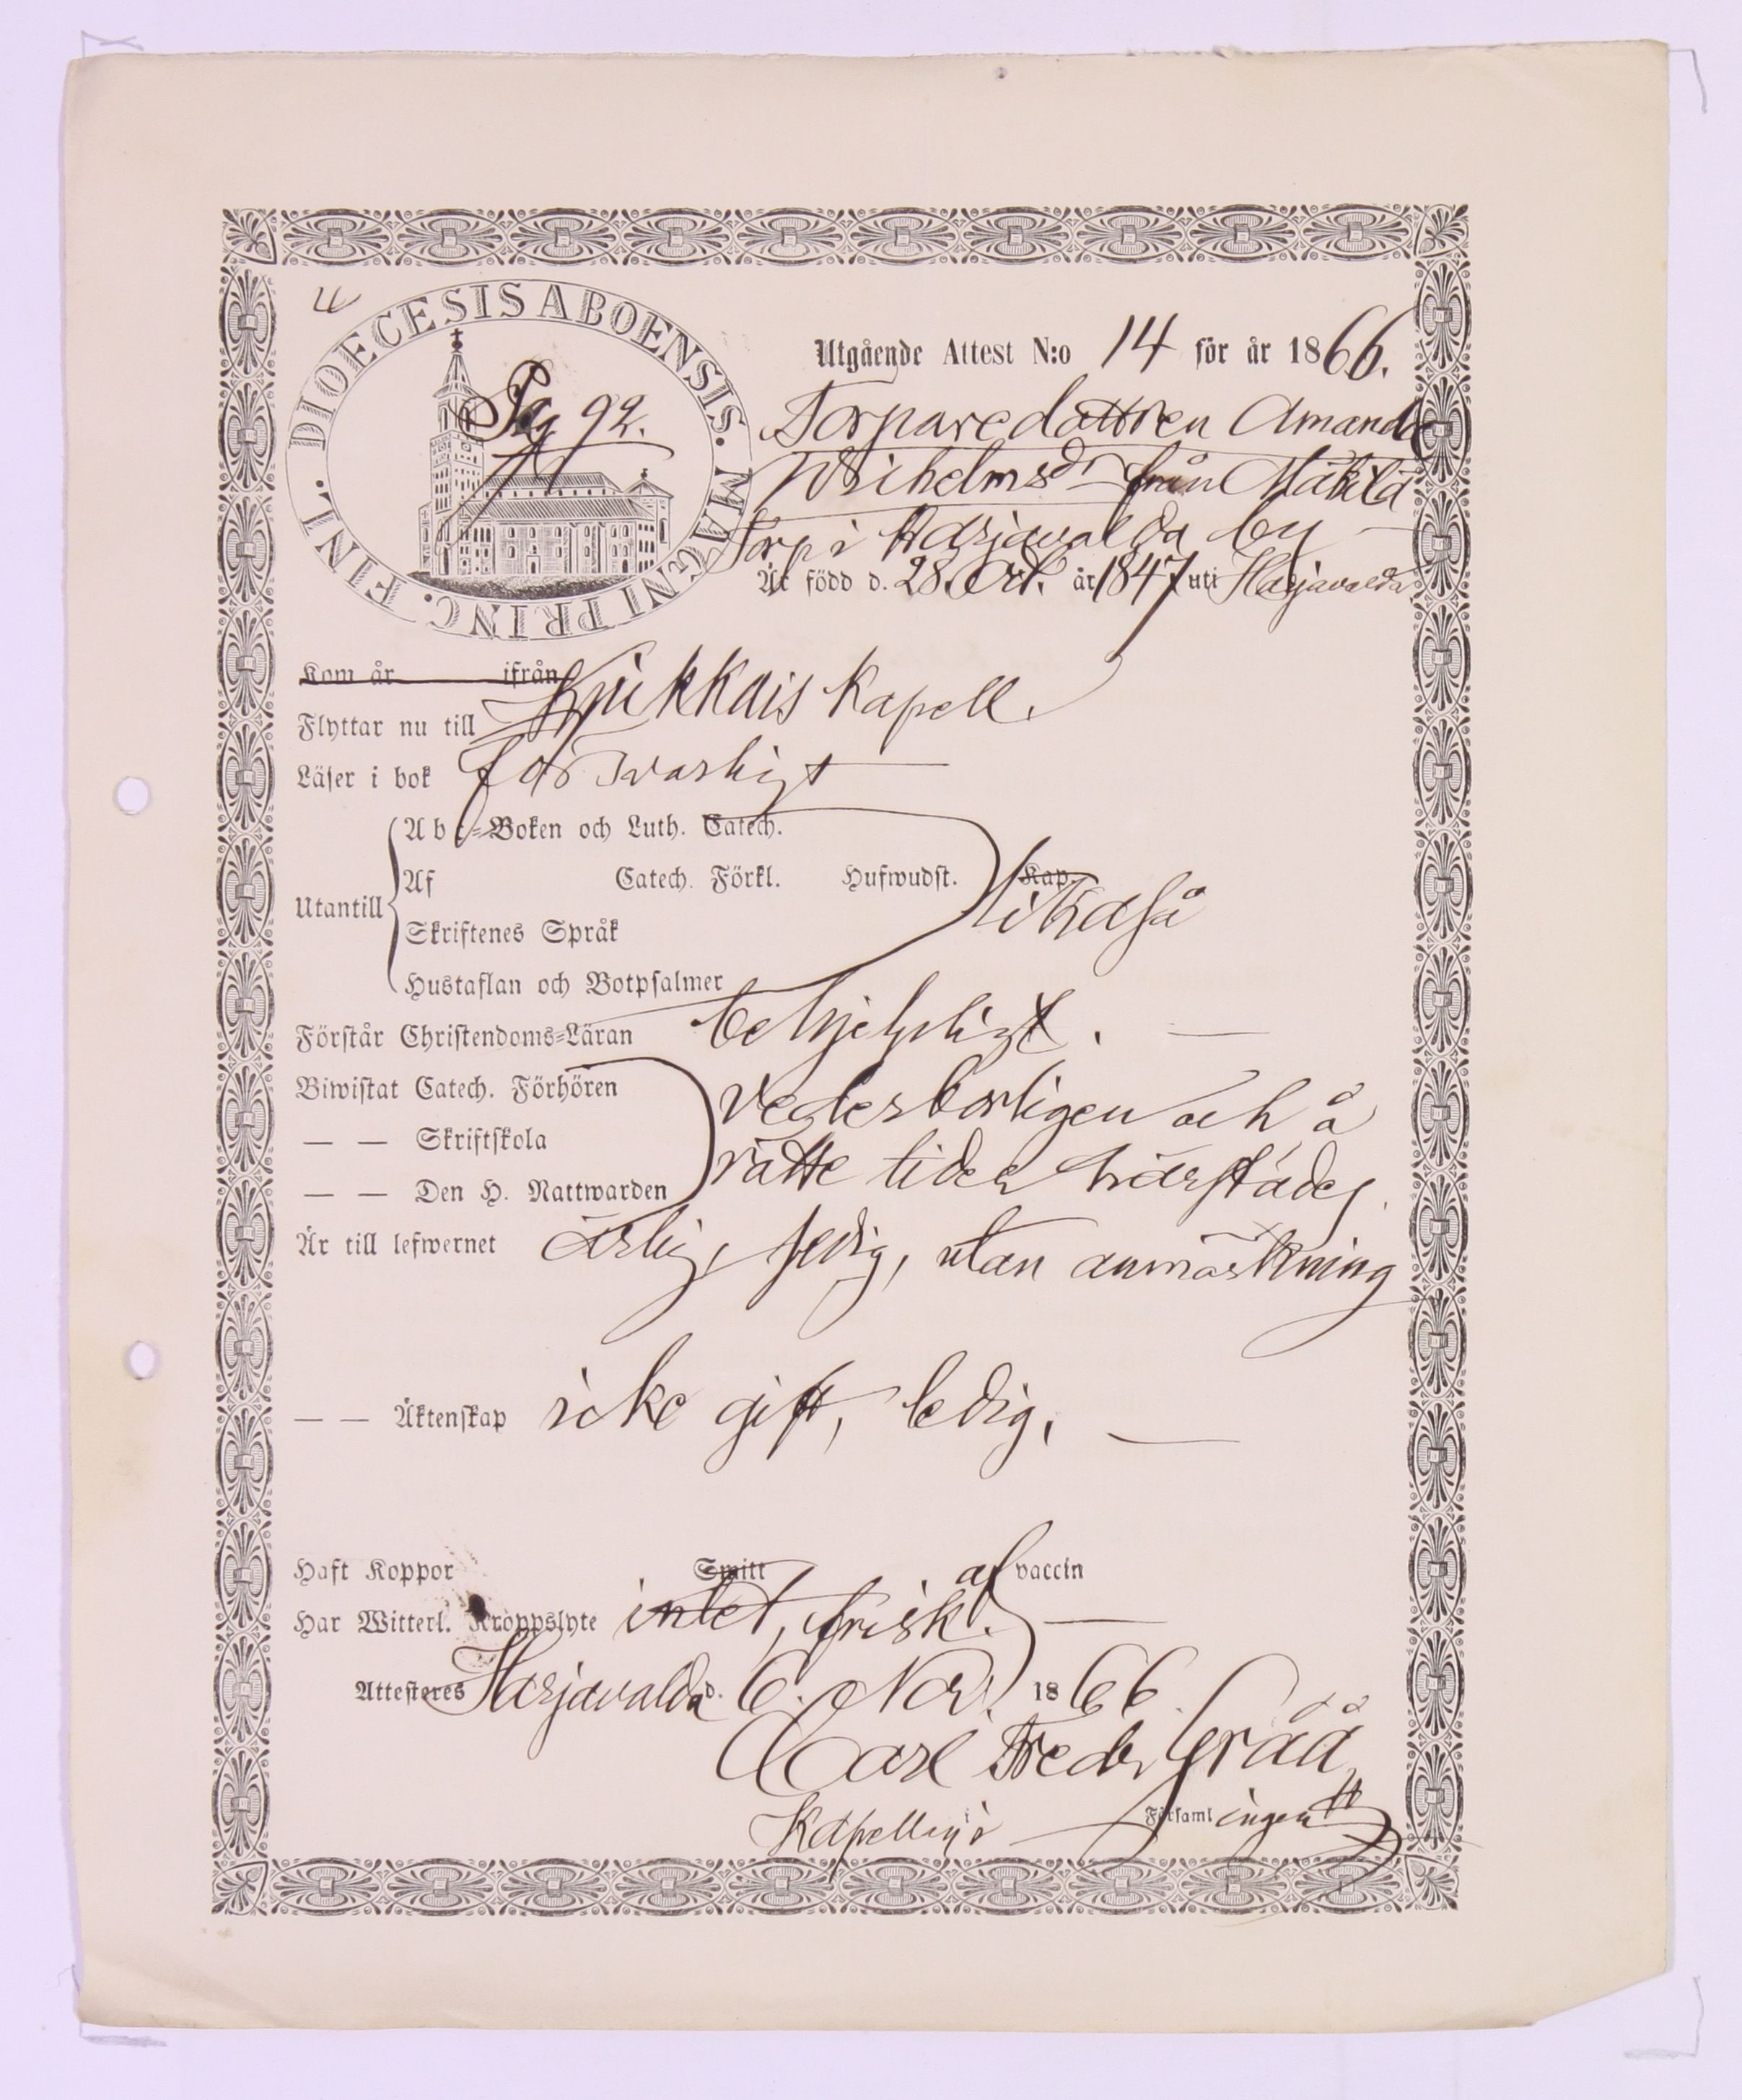 DIOECESIS ABOENSIS. MAGNI PRINC. FINL.
Pag 92.
Utgående Attest N:o 14 för år 1866.
Torparedottren Amanda
Wilhelmsdr från Mäkilä
Torp i Harjavalda by
Är född d. 28. Oct. år 1847 uti Harjavalda
Kom år ifrån
Flyttar nu till Kjukkais Kapell.
Läser i bok försvarligt
Abc=Boken och Luth. Catech.
Af Catech. Förkl. Hufwudst. Kap.
Utantill likaså
Skriftenes Språk
Hustaflan och Botpsalmer
Förstår Christendoms=Läran behjelpligt.
Biwistat Catech. Förhören vederborligen och å
— — Skriftskola
rätte tider härstädes.
— — Den H. Nattwarden
Är till lefwernet ärlig, sedig, utan anmärkning
— — Äktenskap icke gift, ledig.
Haft Koppor Smitt af vaccin
Har Witterl. Kroppslyte intet, frisk.
Attesteres Harjavalda d. 6. Nov. 1866.
Carl Fredr Gråå
Kapellan i Församlingen